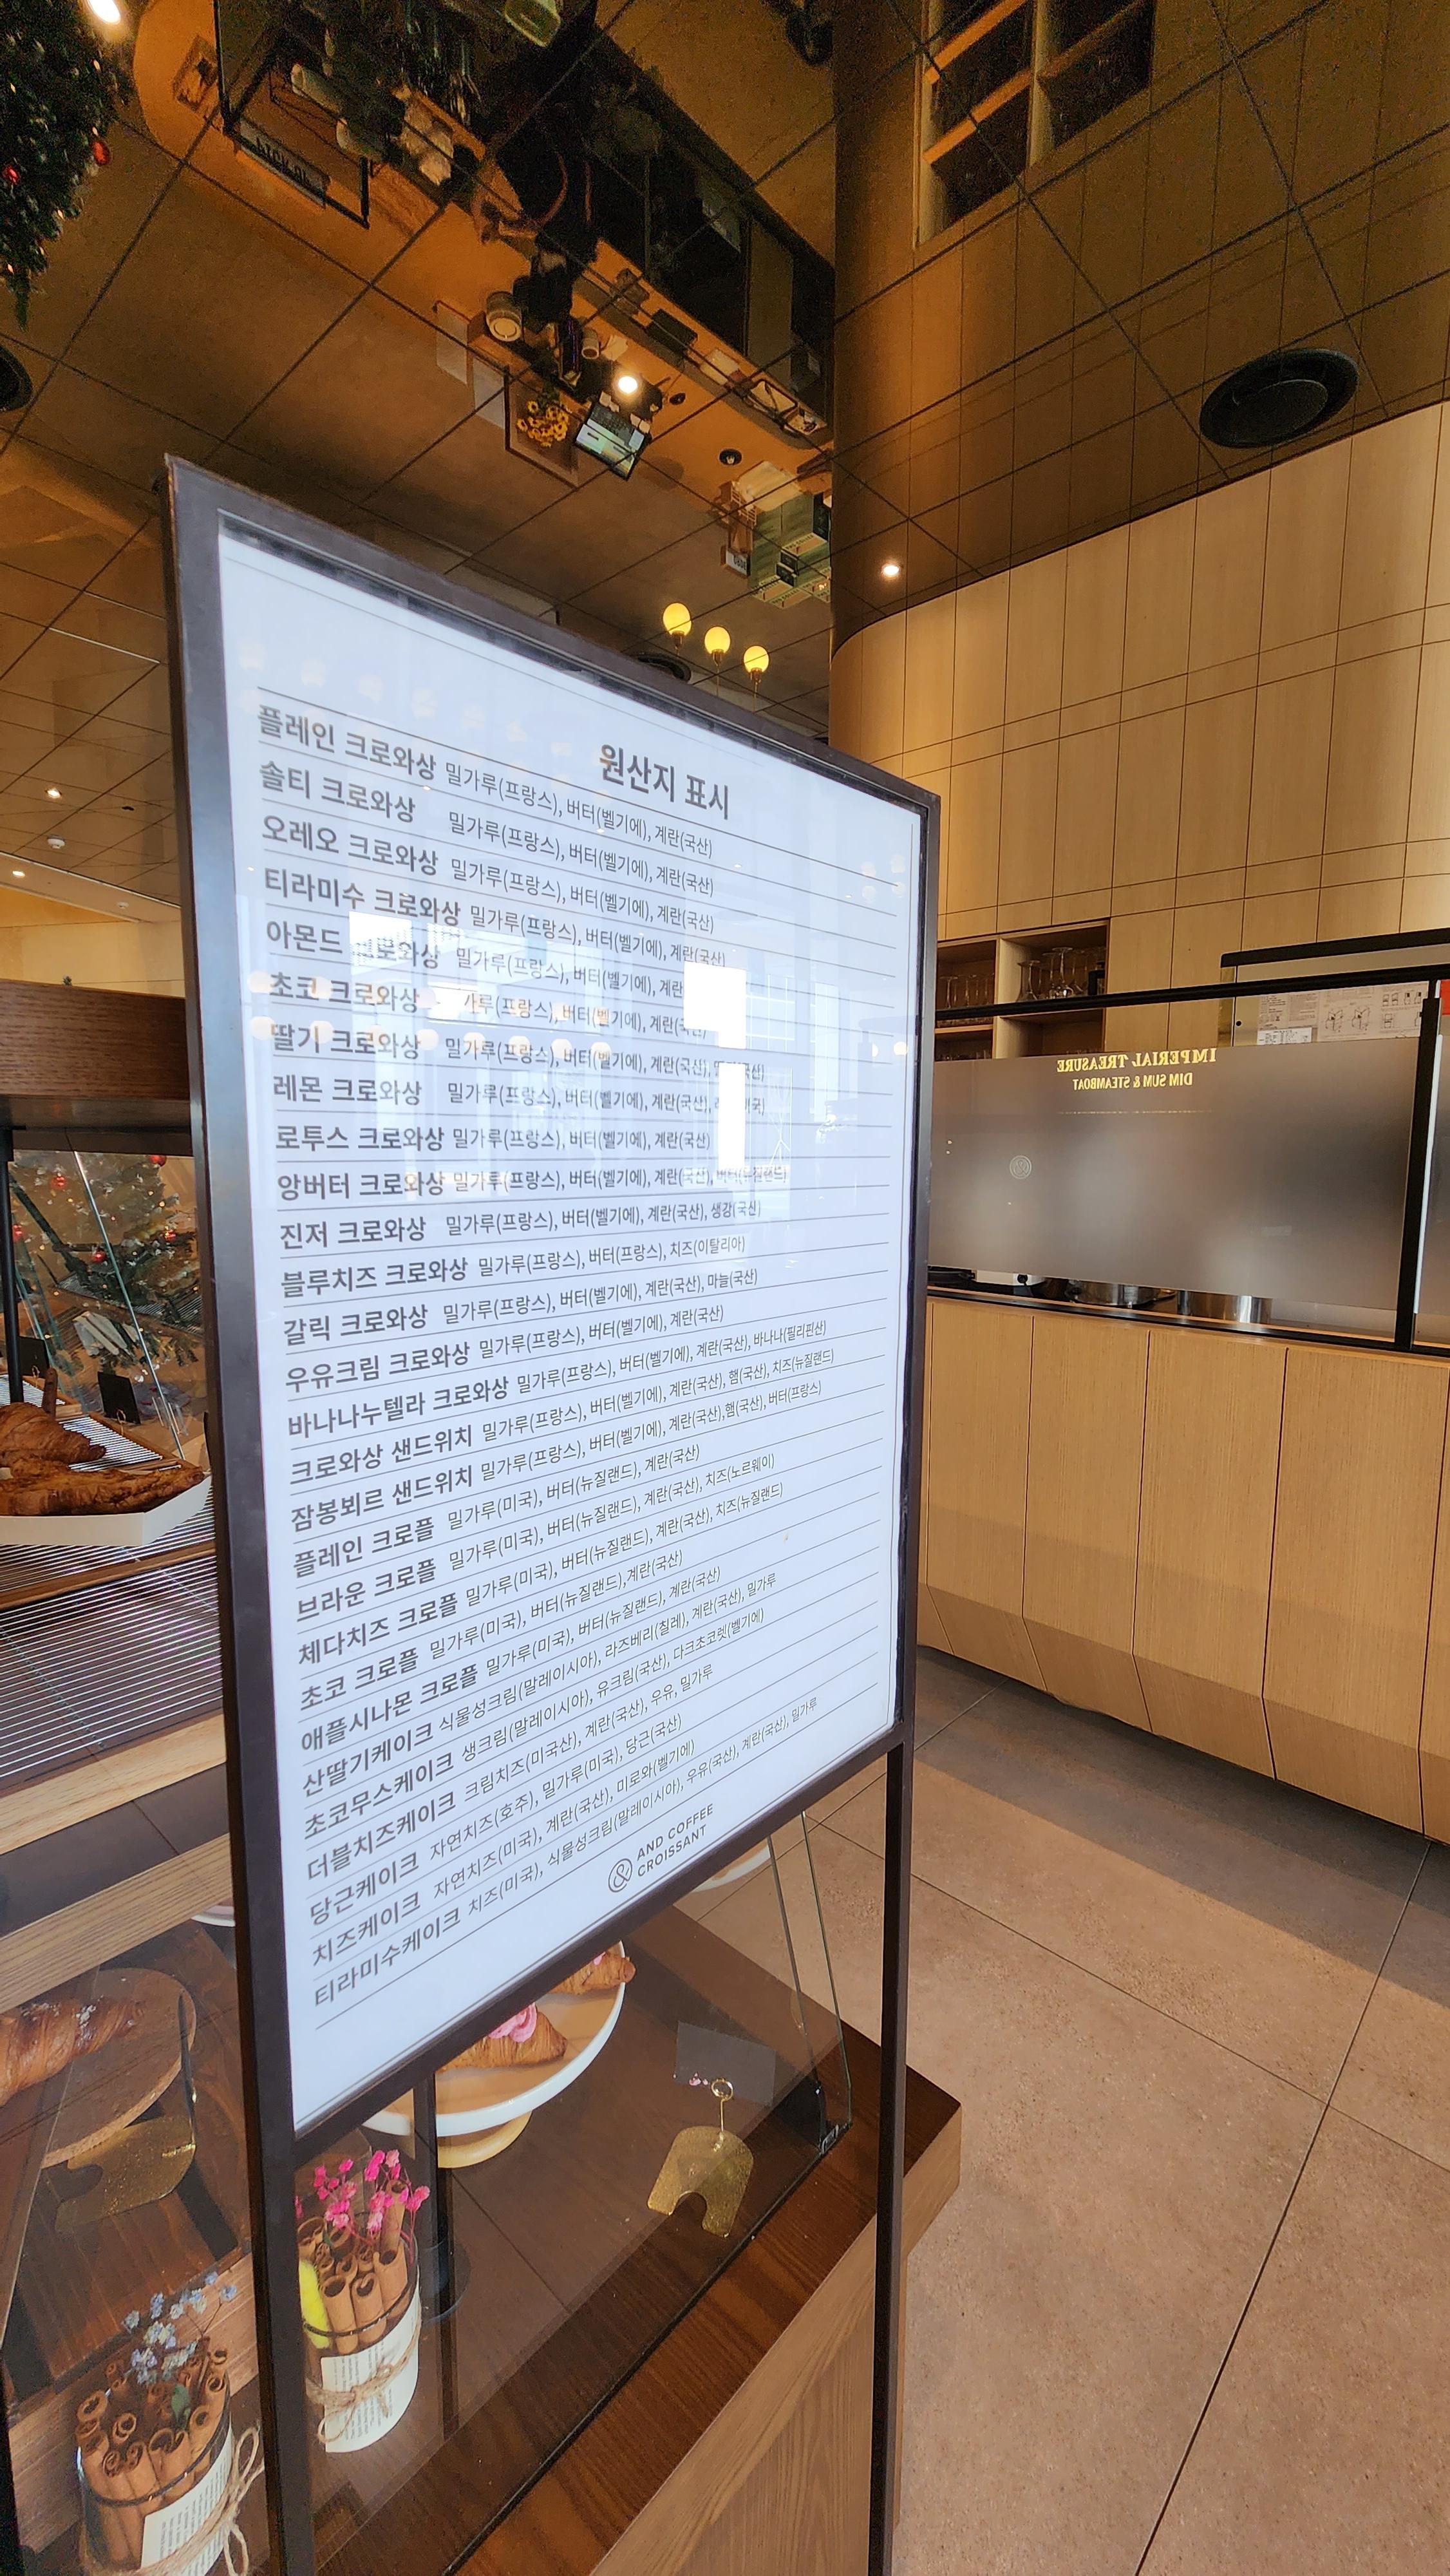 원산지 표시
플레인 크로와상 밀가루(프랑스), 버터(벨기에), 계란(국산)
솔티 크로와상 밀가루(프랑스), 버터(벨기에), 계란(국산)
오레오 크로와상 밀가루(프랑스), 버터(벨기에), 계란(국산)
티라미수 크로와상 밀가루(프랑스), 버터(벨기에), 계란(국산)
아몬드 크로와상 밀가루(프랑스), 버터(벨기에), 계란
초코 크로와상 가루(프랑스), 버터(벨기에), 계란(국산)
딸기 크로와상 밀가루(프랑스), 버터(벨기에), 계란(국산),
레몬 크로와상 밀가루(프랑스), 버터(벨기에), 계란(국산),
로투스 크로와상 밀가루(프랑스), 버터(벨기에), 계란(국산)
앙버터 크로와상 밀가루(프랑스), 버터(벨기에), 계란(국산), 버터(뉴질랜드)
진저 크로와상 밀가루(프랑스), 버터(벨기에), 계란(국산), 생강(국산)
블루치즈 크로와상 밀가루(프랑스), 버터(프랑스), 치즈(이탈리아)
갈릭 크로와상 밀가루(프랑스), 버터(벨기에), 계란(국산), 마늘(국산)
우유크림 크로와상 밀가루(프랑스), 버터(벨기에), 계란(국산)
바나나누텔라 크로와상 밀가루(프랑스), 버터(벨기에), 계란(국산), 바나나(필리핀산)
크로와상 샌드위치 밀가루(프랑스), 버터(벨기에), 계란(국산), 햄(국산), 치즈(뉴질랜드)
잠봉뵈르 샌드위치 밀가루(프랑스), 버터(벨기에), 계란(국산),햄(국산), 버터(프랑스)
플레인 크로플 밀가루(미국), 버터(뉴질랜드), 계란(국산)
브라운 크로플 밀가루(미국), 버터(뉴질랜드), 계란(국산), 치즈(노르웨이)
체다치즈 크로플 밀가루(미국), 버터(뉴질랜드), 계란(국산), 치즈(뉴질랜드)
초코 크로플 밀가루(미국), 버터(뉴질랜드),계란(국산)
애플시나몬 크로플 밀가루(미국), 버터(뉴질랜드), 계란(국산)
산딸기케이크 식물성크림(말레이시아), 라즈베리(칠레), 계란(국산), 밀가루
초코무스케이크 생크림(말레이시아), 유크림(국산), 다크초코렛(벨기에)
더블치즈케이크 크림치즈(미국산), 계란(국산), 우유, 밀가루
당근케이크 자연치즈(호주), 밀가루(미국), 당근(국산)
치즈케이크 자연치즈(미국), 계란(국산), 미로와(벨기에)
티라미수케이크 치즈(미국), 식물성크림(말레이시아), 우유(국산), 계란(국산), 밀가루
& AND COFFEE
CROISSANT
IMPERIAL TREASURE
DIM SUM & STEAMBOAT